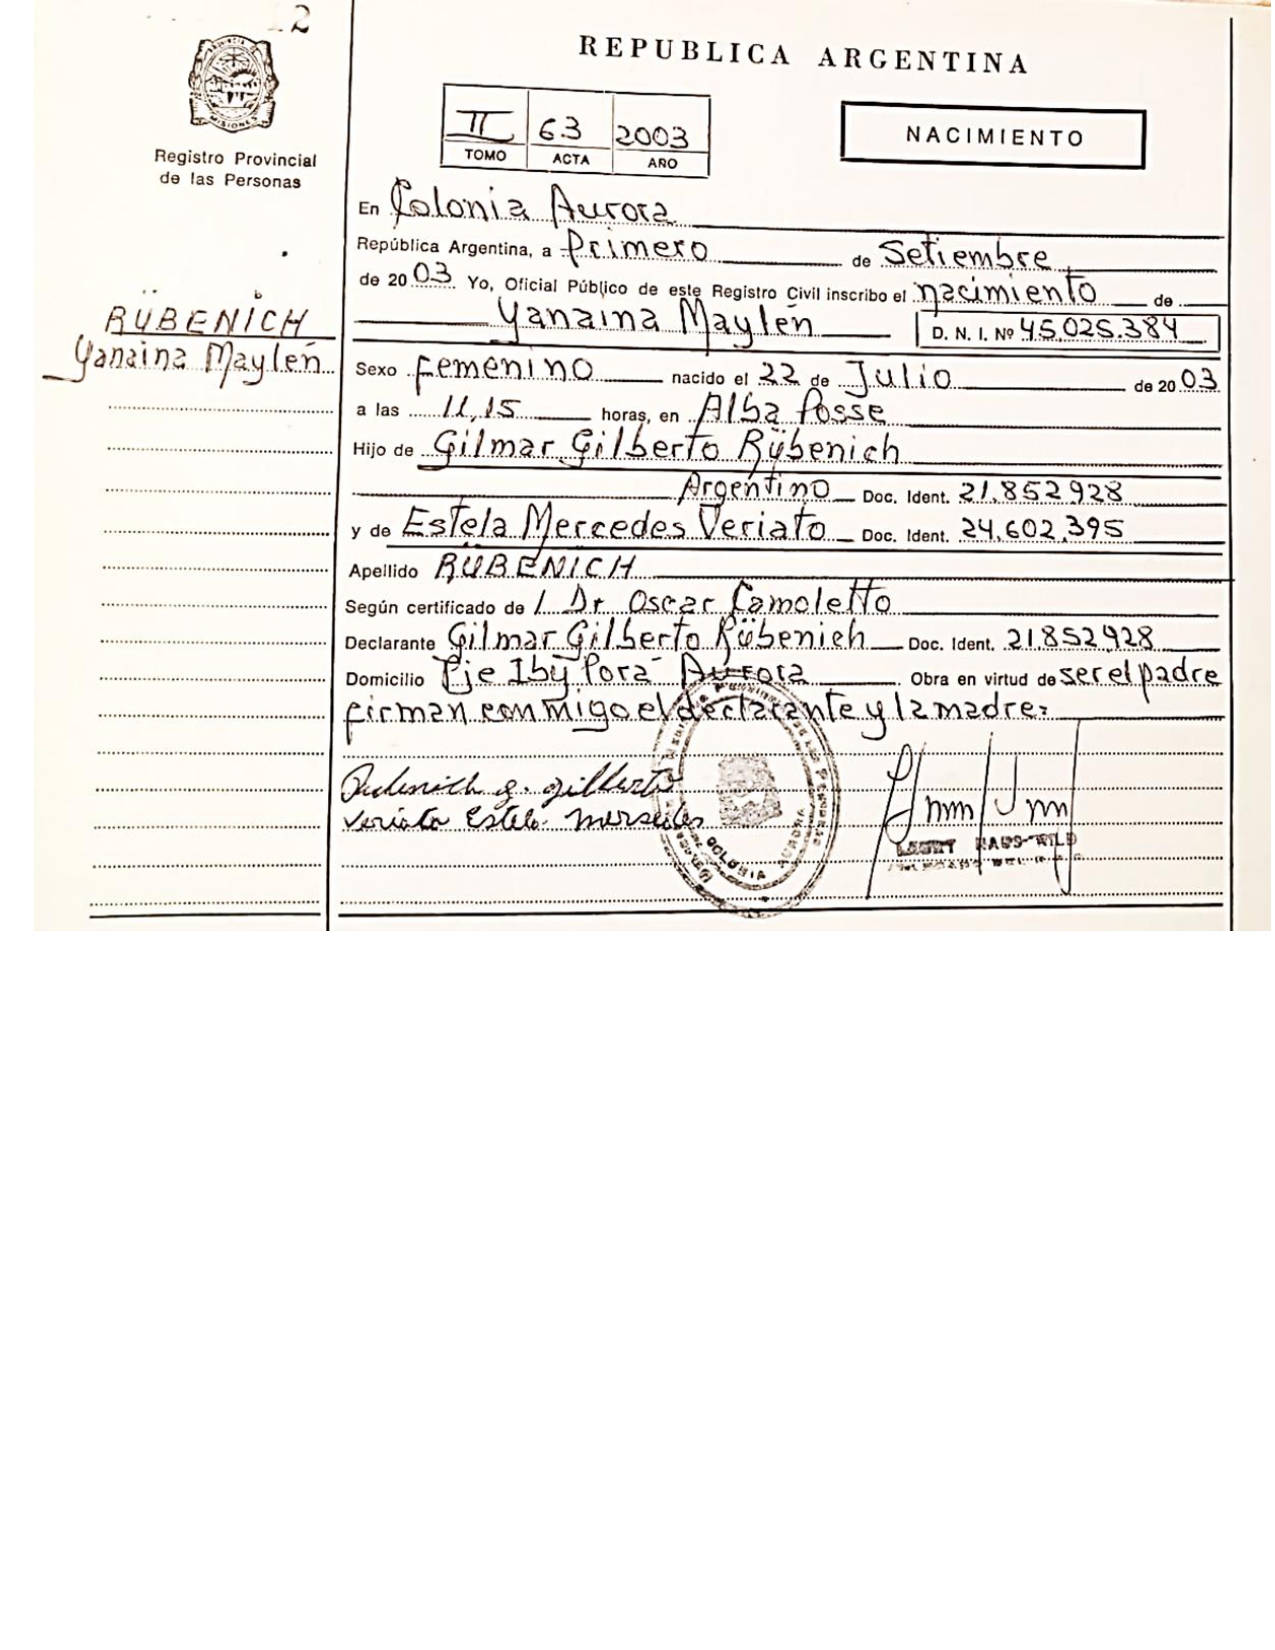 2
REPUBLICA ARGENTINA
MISIONES
Registro Provincial
de las Personas
II 63 2003
TOMO ACTA AÑO
NACIMIENTO
En Colonia Aurora
República Argentina, a Primero de Setiembre
de 2003. Yo, Oficial Público de este Registro Civil inscribo el nacimiento de
Yanaina Maylen D. N. I. Nº 45.025.384
RÜBENICH
Yanaina Maylen
Sexo Femenino nacido el 22 de Julio de 2003
a las 11,15 horas, en Alba Posse
Hijo de Gilmar Gilberto Rübenich
Argentino Doc. Ident. 21.852928
y de Estela Mercedes Veriato Doc. Ident. 24.602.395
Apellido RÜBENICH
Según certificado de Dr Oscar Camoletto
Declarante Gilmar Gilberto Rübenich Doc. Ident. 21.852.928
Domicilio Pje Iby Porá Aurora. Obra en virtud de ser el padre
firman conmigo el declarante y la madre:
Rubenich g. gilberto
Veriato Estela merseides
COLONIA AURORA